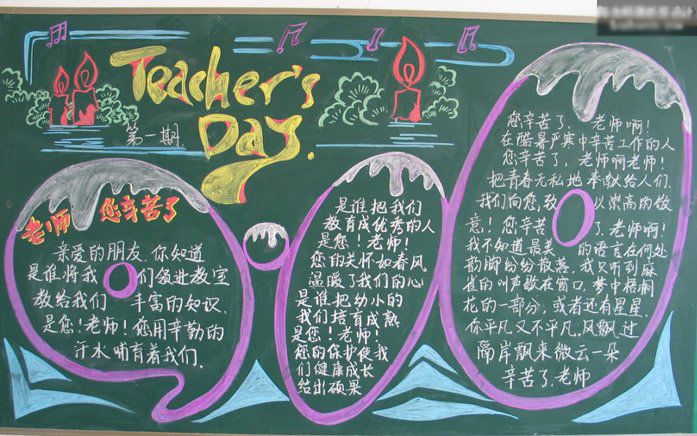 Teacher's
Day.
第一期
老师 您辛苦了
亲爱的朋友.你知道
是谁将我们领进教室
教给我们 丰富的知识.
是您!老师!您用辛勤的
汗水哺育着我们.
是谁把我们
教育成优秀的人
是您!老师!
您的关怀如春风
温暖了我们的心
是谁把幼小的
我们培育成熟
是您!老师!
您的保护使我
们健康成长
结出硕果
您辛苦了,老师啊!
在酷暑严寒中辛苦工作的人
您辛苦了,老师啊老师!
把青春无私地奉献给人们.
我们向您,致 以崇高的敬
意!您辛苦 了.老师啊!
我不知道最美 的语言在何处
韵脚纷纷散落.我只听到麻
雀的叫声歇在窗口.梦中梧桐
花的一部分,或者还有星星.
你平凡又不平凡,风飘过
隔岸飘来微云一朵
辛苦了.老师